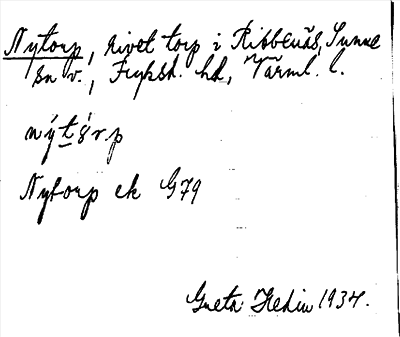 Nytorp, rivet torp i Ribbenäs, Sunne
sn v., Fryksd. hd, Värml. l.
nýtårp
Nytorp ek G79
Greta Hedin 1934.